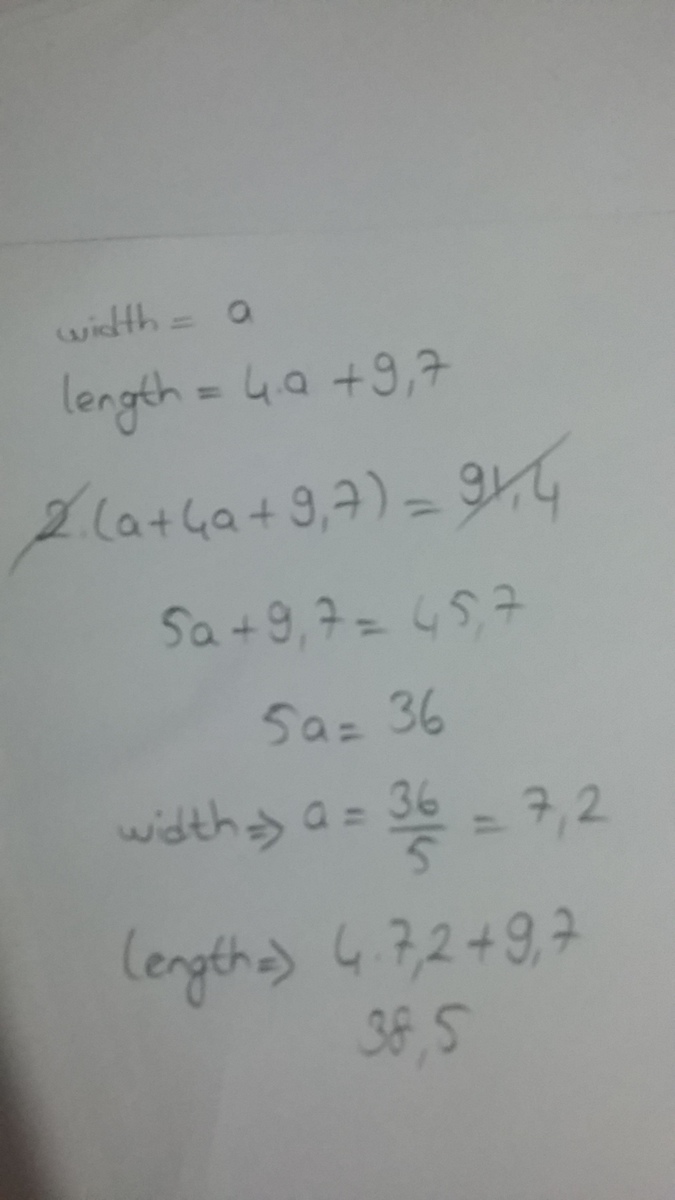 width = a
length = 4.a + 9,7
2.(a+4a+9,7) = 91,4
5a+9,7 = 45,7
5a = 36
width ⇒ a = 36/5 = 7,2
length ⇒ 4.7,2+9,7
38,5